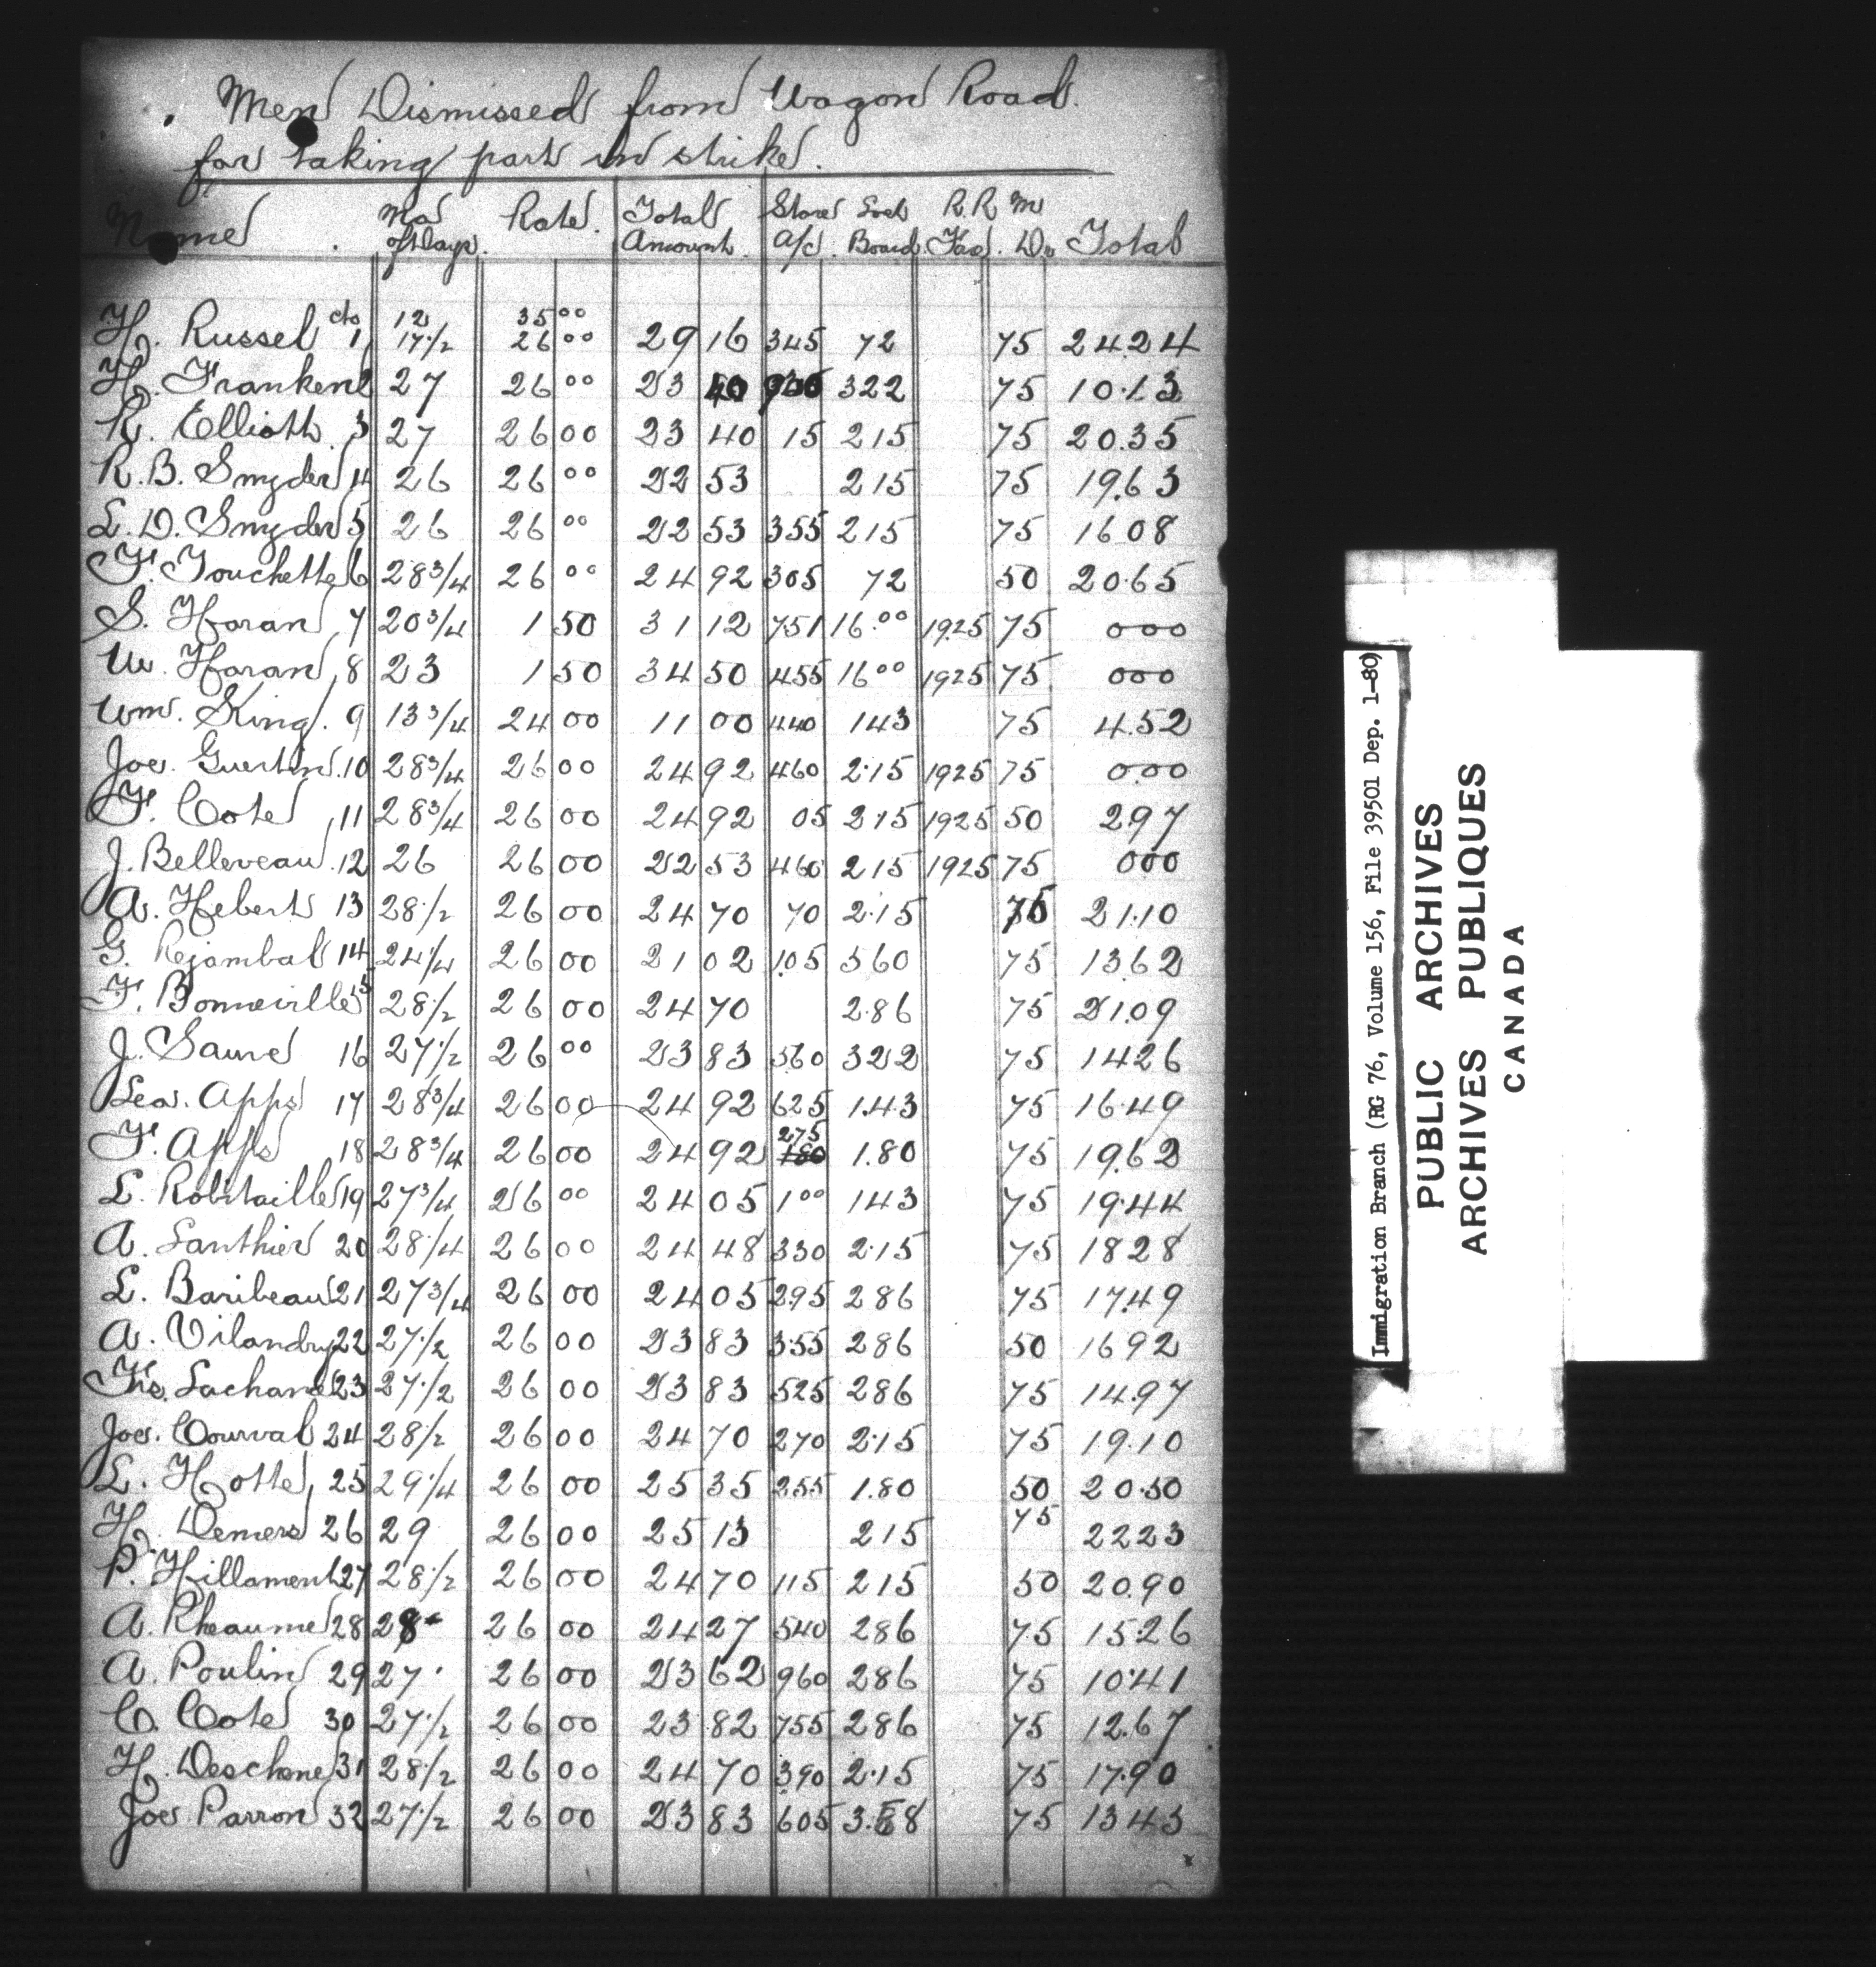 Men Dismissed from Wagon Road.
for taking part in strike.
Name No of Days. Rate. Total Amount. Store A/c Board R.R. Fao. M Dr Total
H. Russel cto 1 12 17½ 35 00 26 00 29 16 345 72 75 24.24
H. Franken 2 27 26 00 23 40 322 75 10.13
R. Elliott 3 27 26 00 23 40 15 215 75 20.35
R. B. Snyder 4 26 26 00 22 53 215 75 19.63
L. D. Snyder 5 26 26 00 22 53 355 215 75 16 08
F. Touchette 6 28¾ 26 00 24 92 305 72 50 20.65
S. Haran 7 20¾ 1 50 31 12 751 16.00 1925 75 000
W. Haran 8 23 1 50 34 50 455 16 00 1925 75 000
Wm. King. 9 13¾ 24 00 11 00 440 143 75 4.52
Joe. Guertin. 10 28¾ 26 00 24 92 460 2.15 1925 75 0.00
F. Cote 11 28¾ 26 00 24 92 05 2.15 1925 50 297
J. Belleveau. 12 26 26 00 22 53 460 215 1925 75 000
A. Hebert 13 28½ 26 00 24 70 70 2.15 75 21.10
G. Rejambal 14 24¼ 26 00 21 02 1.05 560 75 13.62
F. Bonneville 15 28½ 26 00 24 70 2.86 75 21.09
J. Sauve 16 27½ 26 00 23 83 560 322 75 14.26
Leo. Apps 17 28¾ 26 00 24 92 625 1.43 75 16.49
F. Apps 18 28¾ 26 00 24 92 275 180 1.80 75 19.62
L. Robitaille 19 27¾ 26 00 24 05 1 00 143 75 19.44
A. Lanthier 20 28¼ 26 00 24 48 330 2.15 75 18 28
L. Baribeau 21 27¾ 26 00 24 05 295 286 75 17.49
A. Vilandry 22 27½ 26 00 23 83 3.55 286 50 16 92
Frs. Lachance 23 27½ 26 00 23 83 525 286 75 14.97
Joe. Courval 24 28½ 26 00 24 70 270 2.15 75 19.10
L. Hotte, 25 29¼ 26 00 25 35 255 1.80 50 20.50
H. Demers 26 29 26 00 25 13 215 75 22 23
P. Hillament 27 28½ 26 00 24 70 115 215 50 20.90
A. Rheaume 28 28 26 00 24 27 540 286 75 15.26
A. Poulin 29 27. 26 00 23 62 960 286 75 10.41
C. Cote 30 27½ 26 00 23 82 755 286 75 12.67
H. Deschene 31 28½ 26 00 24 70 390 2.15 75 17.90
Joe Parron 32 27½ 26 00 23 83 605 3.58 75 13 43
Immigration Branch (RG 76, Volume 156, File 39501 Dep. 1-80)
PUBLIC ARCHIVES
ARCHIVES PUBLIQUES
CANADA